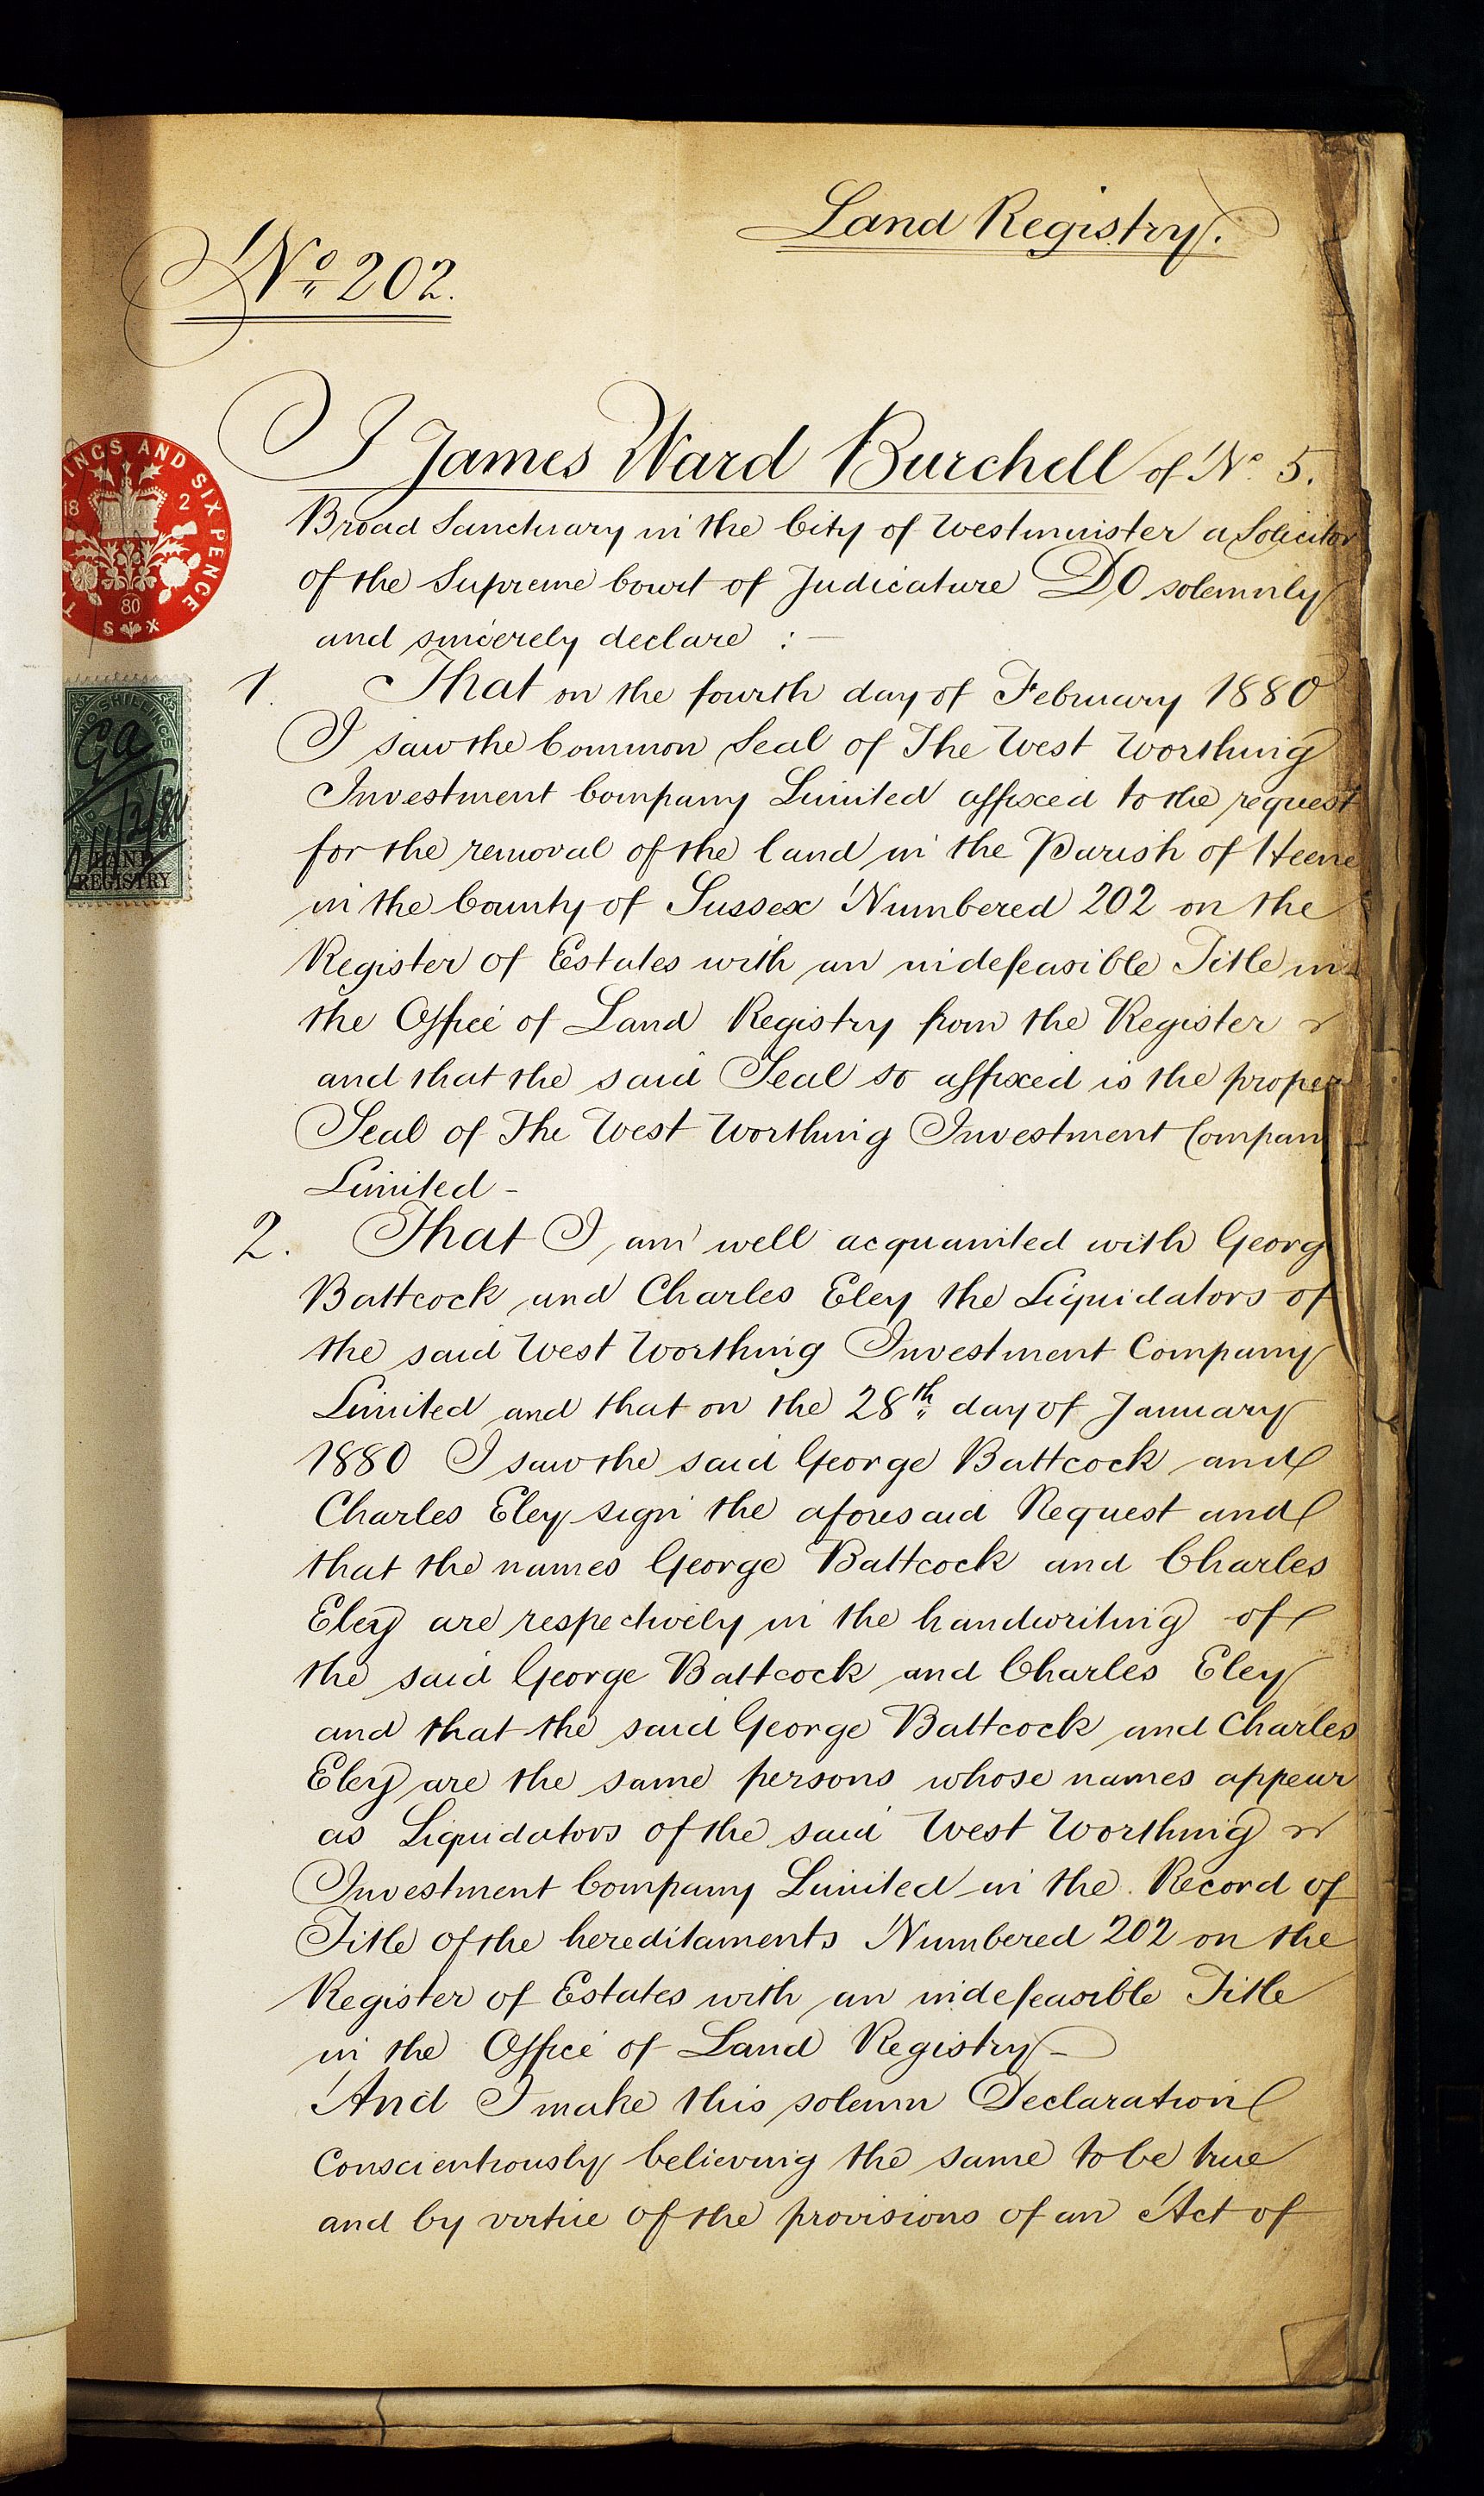 Land Registry.
No 202.
I James Ward Burchell of No 5.
Broad Sanctuary in the City of Westminster a Solicitor
of the Supreme Court of Judicature DO solemnly
and sincerely declare :—
1. That on the fourth day of February 1880
I saw the Common Seal of The West Worthing
Investment Company Limited affixed to the request
for the removal of the land in the Parish of Heene
in the County of Sussex Numbered 202 on the
Register of Estates with an indefeasible Title in
the Office of Land Registry from the Register
and that the said Seal so affixed is the proper
Seal of The West Worthing Investment Compan
Limited -
2. That I am well acquainted with Georg
Battcock and Charles Eley the Liquidators of
the said West Worthing Investment Company
Limited and that on the 28th day of January
1880 I saw the said George Battcock and
Charles Eley sign the aforesaid Request and
that the names George Battcock and Charles
Eley are respectively in the handwriting of
the said George Battcock and Charles Eley
and that the said George Battcock and Charles
Eley are the same persons whose names appear
as Liquidators of the said West Worthing
Investment Company Limited in the Record of
Title of the hereditaments Numbered 202 on the
Register of Estates with an indefeasible Title
in the Office of Land Registry -
And I make this solemn Declaration
conscientiously believing the same to be true
and by virtue of the provisions of an Act of
INGS AND SIX PENCE
18 2
80
TWO SHILLINGS
LAND
REGISTRY